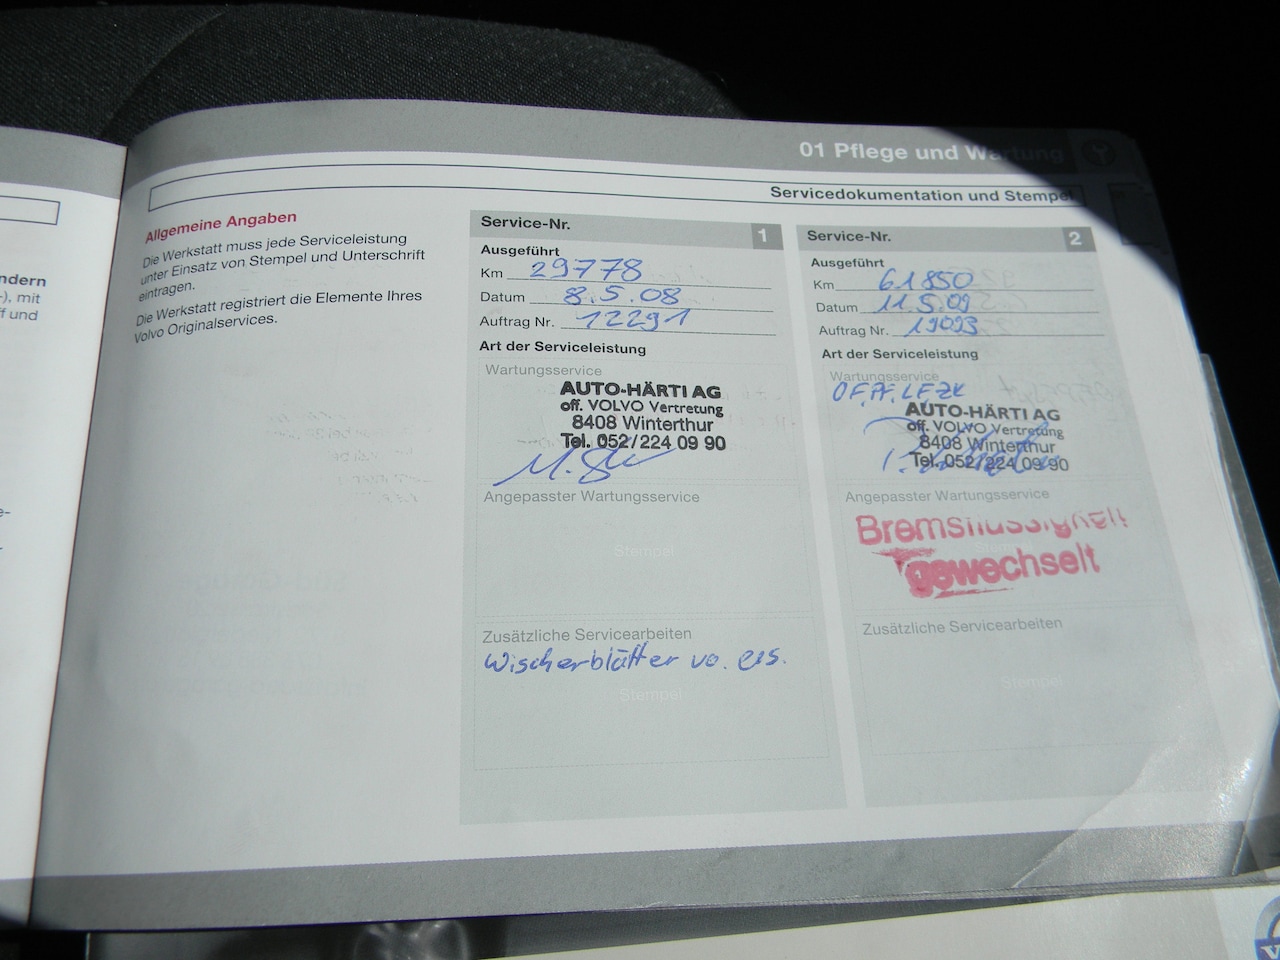 01 Pflege und Wartung
Servicedokumentation und Stempel
ndern
-), mit
ff und
Allgemeine Angaben
Die Werkstatt muss jede Serviceleistung
unter Einsatz von Stempel und Unterschrift
eintragen.
Die Werkstatt registriert die Elemente Ihres
Volvo Originalservices.
Service-Nr. 1
Ausgeführt
Km 29778
Datum 8.5.08
Auftrag Nr. 12291
Art der Serviceleistung
Wartungsservice
AUTO-HÄRTI AG
off. VOLVO Vertretung
8408 Winterthur
Tel. 052/224 09 90
Angepasster Wartungsservice
Stempel
Zusätzliche Servicearbeiten
Wischerblätter vo. ers.
Stempel
Service-Nr. 2
Ausgeführt
Km 61850
Datum 11.5.09
Auftrag Nr. 19093
Art der Serviceleistung
Wartungsservice
AUTO-HÄRTI AG
off. VOLVO Vertretung
8408 Winterthur
Tel. 052/224 09 90
Angepasster Wartungsservice
Bremsflüssigkeit
gewechselt
Zusätzliche Servicearbeiten
Stempel